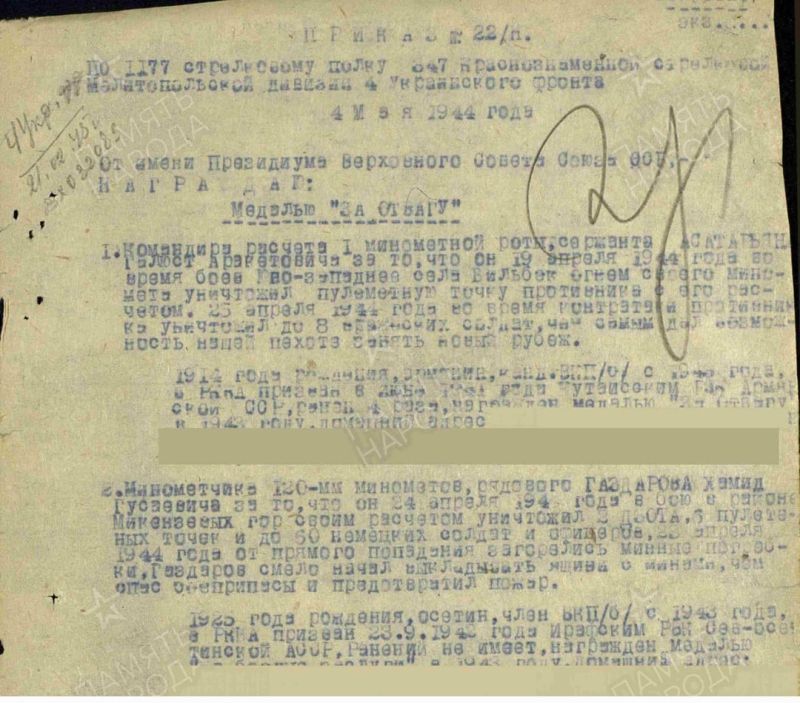 экз.....
ПРИКАЗ № 22/н.
По 1177 стрелковому полку 347 Краснознаменной стрелковой
Мелитопольской дивизии 4 Украинского фронта
4 Мая 1944 года
4 Укр.
От имени Президиума Верховного Совета Союза ССР,-
НАГРАЖДАЮ:
Медалью "ЗА ОТВАГУ"
1. Командира расчета 1 минометной роты, сержанта АСАТАРЬЯНА
Галюст Аракетовича за то, что он 19 апреля 1944 года во
время боев юго-западнее села Бельбек огнем своего мино-
мета уничтожил пулеметную точку противника с его рас-
четом. 23 апреля 1944 года во время контратаки противни-
ка уничтожил до 8 вражеских солдат, чем самым дал возмож-
ность нашей пехоте занять новый рубеж.
1914 года рождения, армянин, канд. ВКП/б/ с 1943 года,
в РККА призван в года РВК Армян-
ской ССР, ранен 4 раза, награжден медалью "За Отвагу
в 1943 году, домашний адрес
2. Минометчика 120-мм минометов, рядового ГАЗДАРОВА Хамид
Гусаевича за то, что он 24 апреля 194 года в бою в районе
Микензевых гор своим расчетом уничтожил 2 ДЗОТА, 6 пулеме-
ных точек и до 60 немецких солдат и офицеров, 25 апреля
1944 года от прямого попадания загорелись минные
ки, Газдаров смело начал выкладывать ящики с минами, чем
спас боеприпасы и предотвратил пожар.
1925 года рождения, осетин, член ВКП/б/ с 1943 года,
в РККА призван 23.9.1942 года Ирафским РВК Сев-Осе-
тинской АССР, Ранений не имеет, награжден медалью
"За боевые заслуги" в 1943 году, домашний адрес:
ПАМЯТЬ НАРОДА
ПАМЯТЬ НАРОДА
ПАМЯТЬ НАРОДА
ПАМЯТЬ НАРОДА